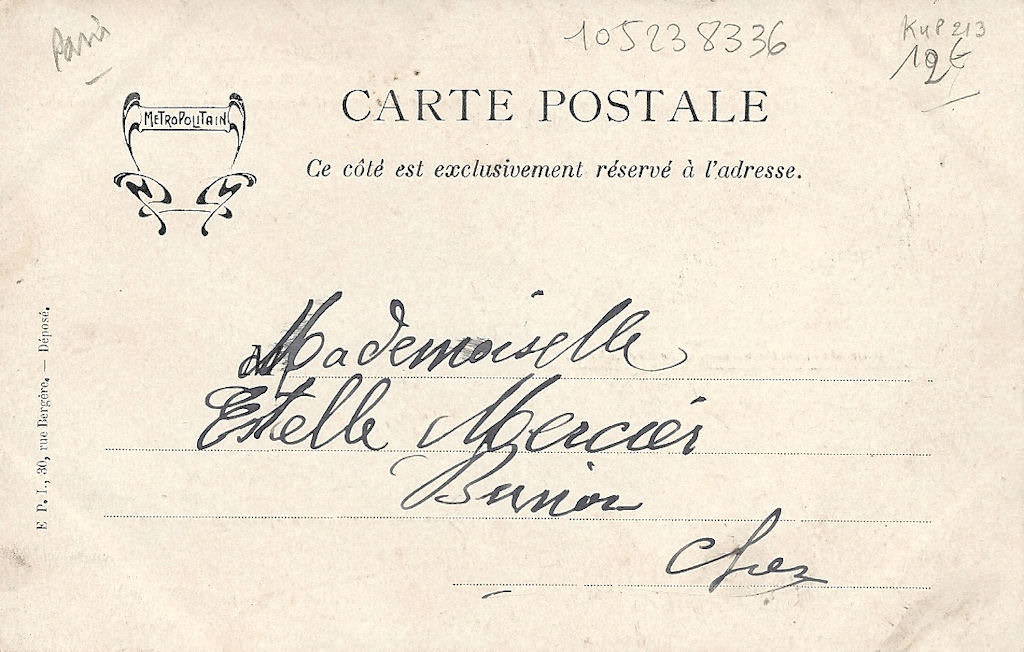 Paris
105238336
KUP 213
12€
METROPOLITAIN
CARTE POSTALE
Ce côté est exclusivement réservé à l'adresse.
Mademoiselle
Estelle Mercier
E. P. I., 30, rue Bergère. — Déposé.